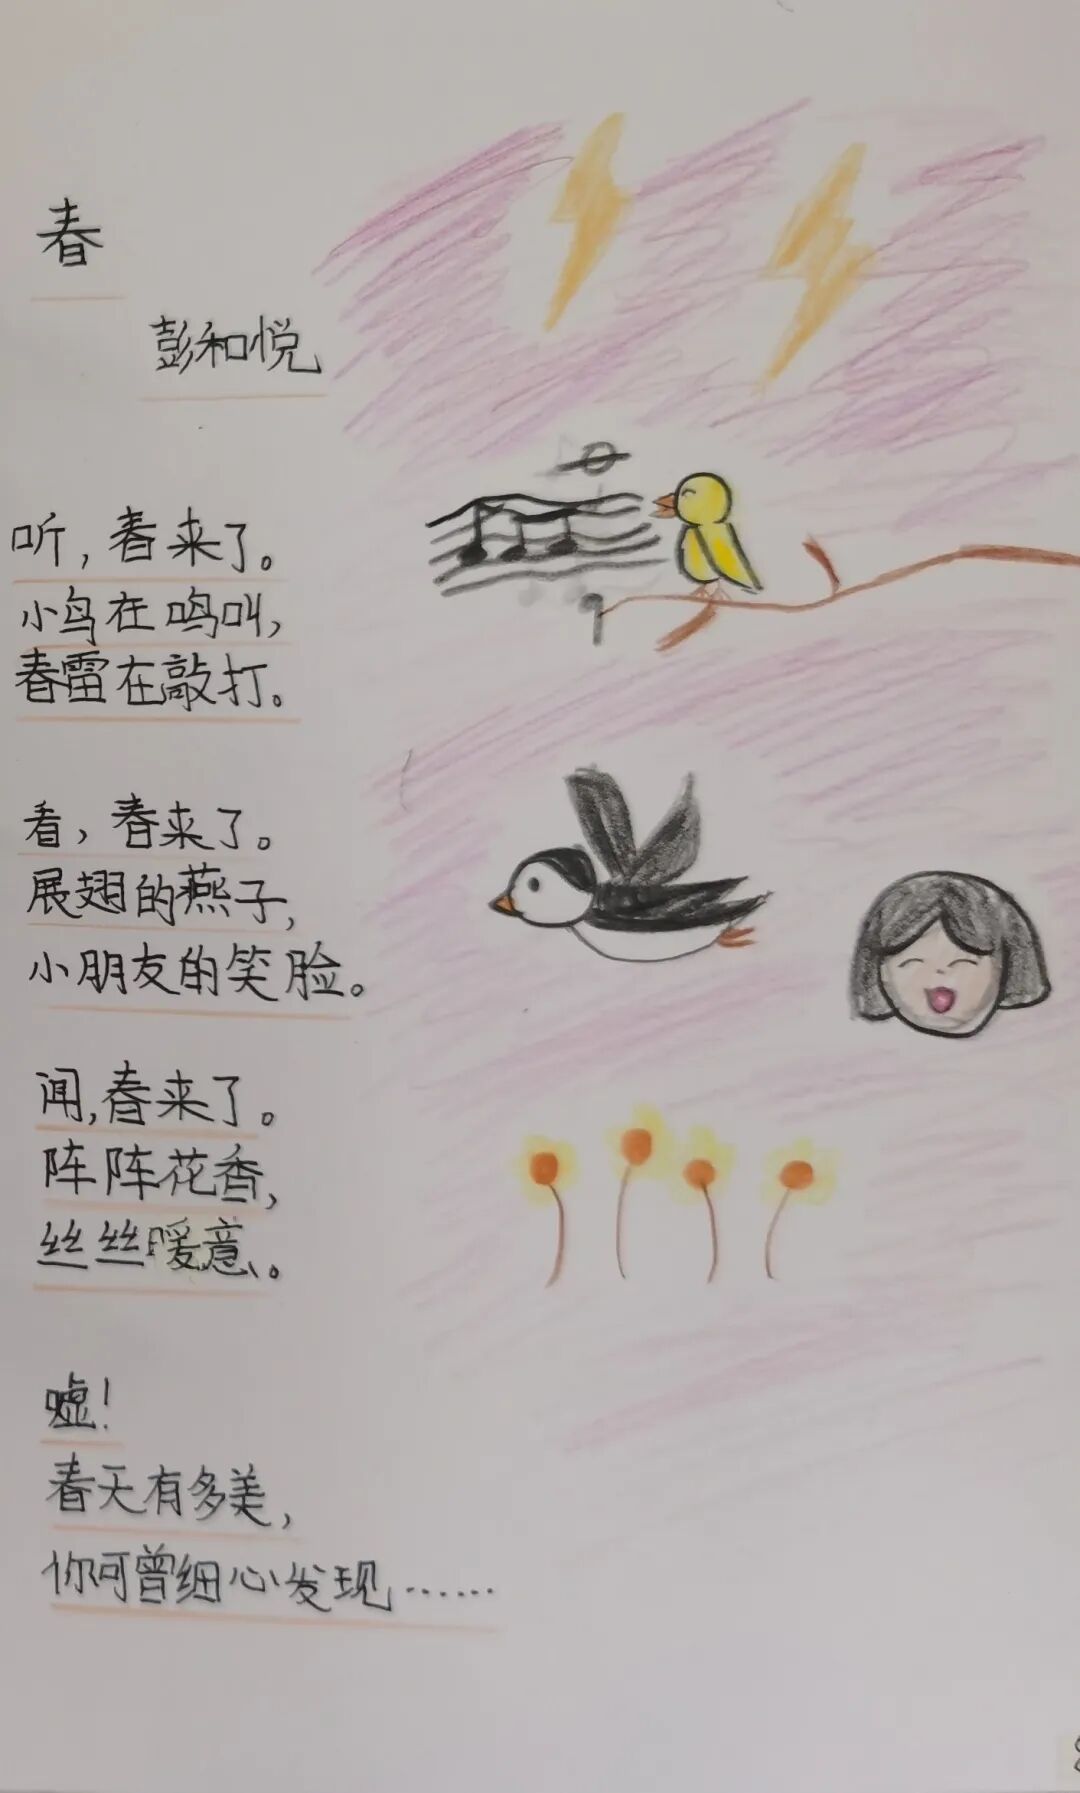 春
彭和悦
听,春来了。
小鸟在鸣叫,
春雷在敲打。
看,春来了。
展翅的燕子,
小朋友的笑脸。
闻,春来了。
阵阵花香,
丝丝暖意。
嘘!
春天有多美,
你可曾细心发现……